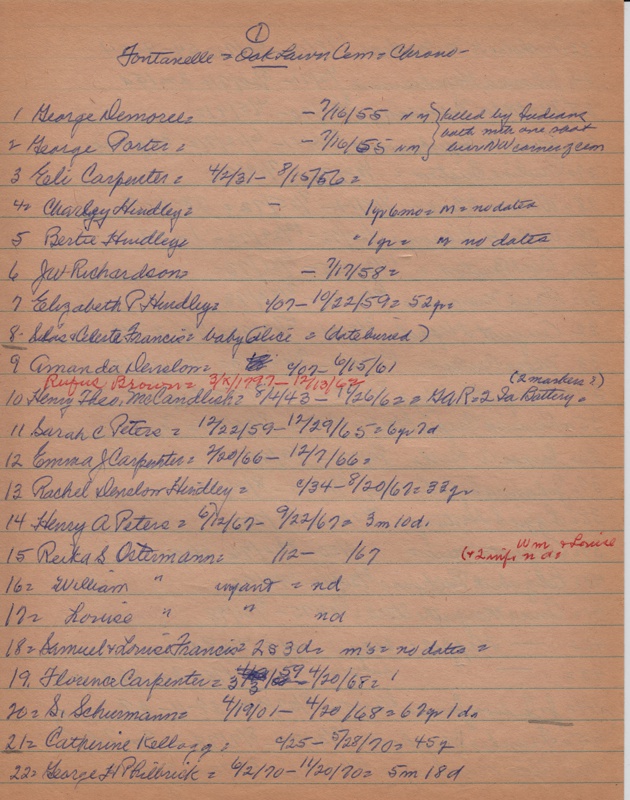 1
Fontanelle = Oak Lawn Cem = Chrono-
1 George Demoree= - 7/16/55 NM } killed by Indians
both with one shot
2 George Porter= - 7/16/55 NM } NW corner of cem
3 Eli Carpenter= 4/2/31- 8/15/56=
4= Hindley= - 1yr 6mo = M = no dates
5 Bertie Hindley= " 1yr = m no dates
6 JW Richardson= - 7/17/58=
7 Elizabeth P Hindley= c/07- 10/22/59= 52yr=
8- & Celeste Francis= baby Alice = (date buried)
9 Amanda Denslow= c/07- 6/15/61
Rufus Brown= 3/X/1797- 12/13/62 (2 markers?)
10 Henry Theo. McCandlish= 8/4/43- 1/26/62= GAR=2 Ia Battery=
11 Sarah C Peters= 12/22/59- 12/29/65=6yr 7d
12 Emma J Carpenter= 2/20/66- 12/7/66=
13 Rachel Denslow Hindley= c/34- 8/20/67= 33yr
14 Henry A Peters= 6/12/67- 9/22/67= 3m 10d.
Wm & Louise
15 Reika S. Ostermann= /12- /67 (+2 infs nds
16= William " infant = nd
17= Louise " " nd
18= Samuel & Louise Francis= 2 & 3d= m's= no dates=
19. Florence Carpenter= 4/20/68=
20= S. Schurmann= 4/19/01- 4/20/68=67yr 1da
21= Catherine Kellogg= c/25- 5/28/70= 45y
22= George H Philbrick= 6/2/70- 11/20/70= 5m 18d